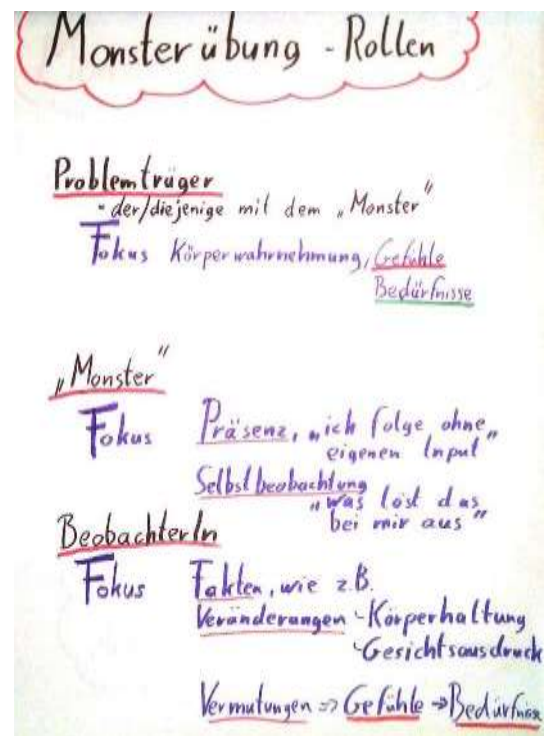 Monsterübung - Rollen
Problemträger
- der/diejenige mit dem „Monster"
Fokus Körperwahrnehmung, Gefühle
Bedürfnisse
„Monster"
Fokus Präsenz, „ich folge ohne
eigenen Input"
Selbstbeobachtung
„was löst das
bei mir aus"
BeobachterIn
Fokus Fakten, wie z.B.
Veränderungen - Körperhaltung
- Gesichtsausdruck
Vermutungen => Gefühle -> Bedürfnisse